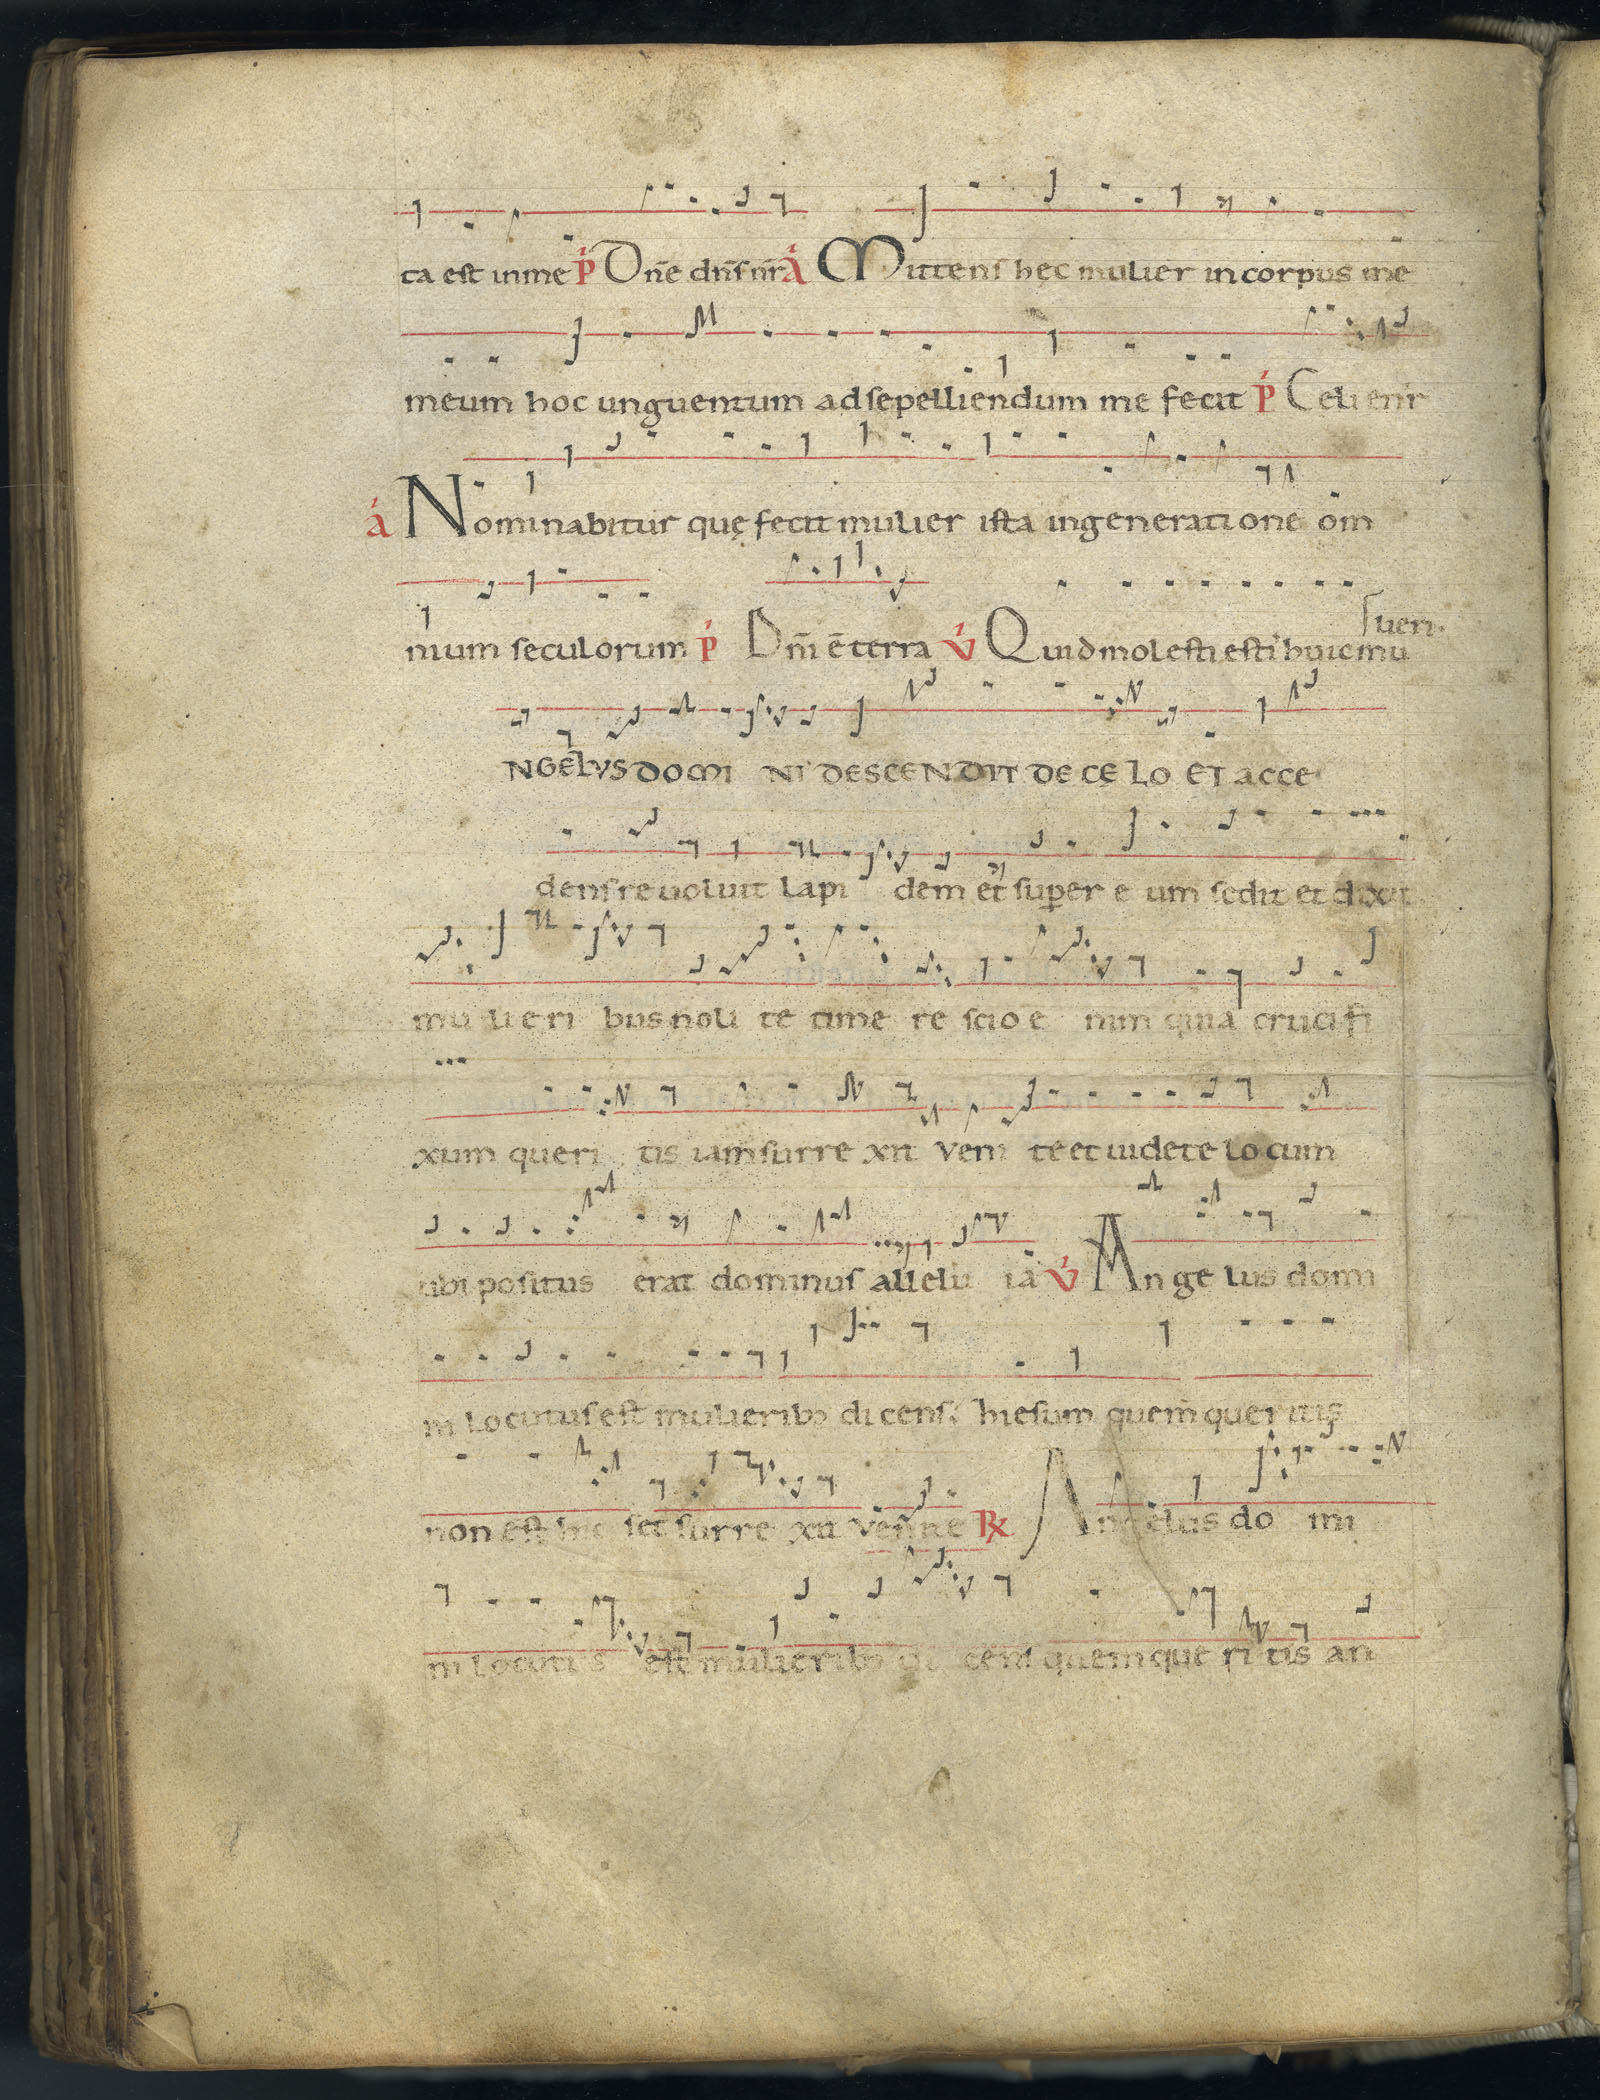 ta est in me p̄ Dn̄e dn̄s nr̄ á Mittens hęc mulier in corpus me
meum hoc unguentum ad sepelliendum me fecit p̄ Celi enr
á Nominabitur quę fecit mulier ista in generatione om̄
nium seculorum p̄ Dn̄i ē terra v̄ Quid molesti estis huic mu
sueri.
NGELUS DOMI NI DESCENDIT DE CĘ LO ET ACCE
dens re uoluit lapi dem et super e um sedit et dixit
mu li e ri bus noli te time re scio e nim quia crucifi
xum queri tis iam surre xit veni te et uidete locum
ubi positus erat dominus allelu ia v̄ An ge lus domi
ni locutus est mulieribꝰ dicens: hiesum quem queritis
non est hic set surre xit venite R Angelus do mi
ni locutus est mulieribꝰ di cens quem que ri tis an